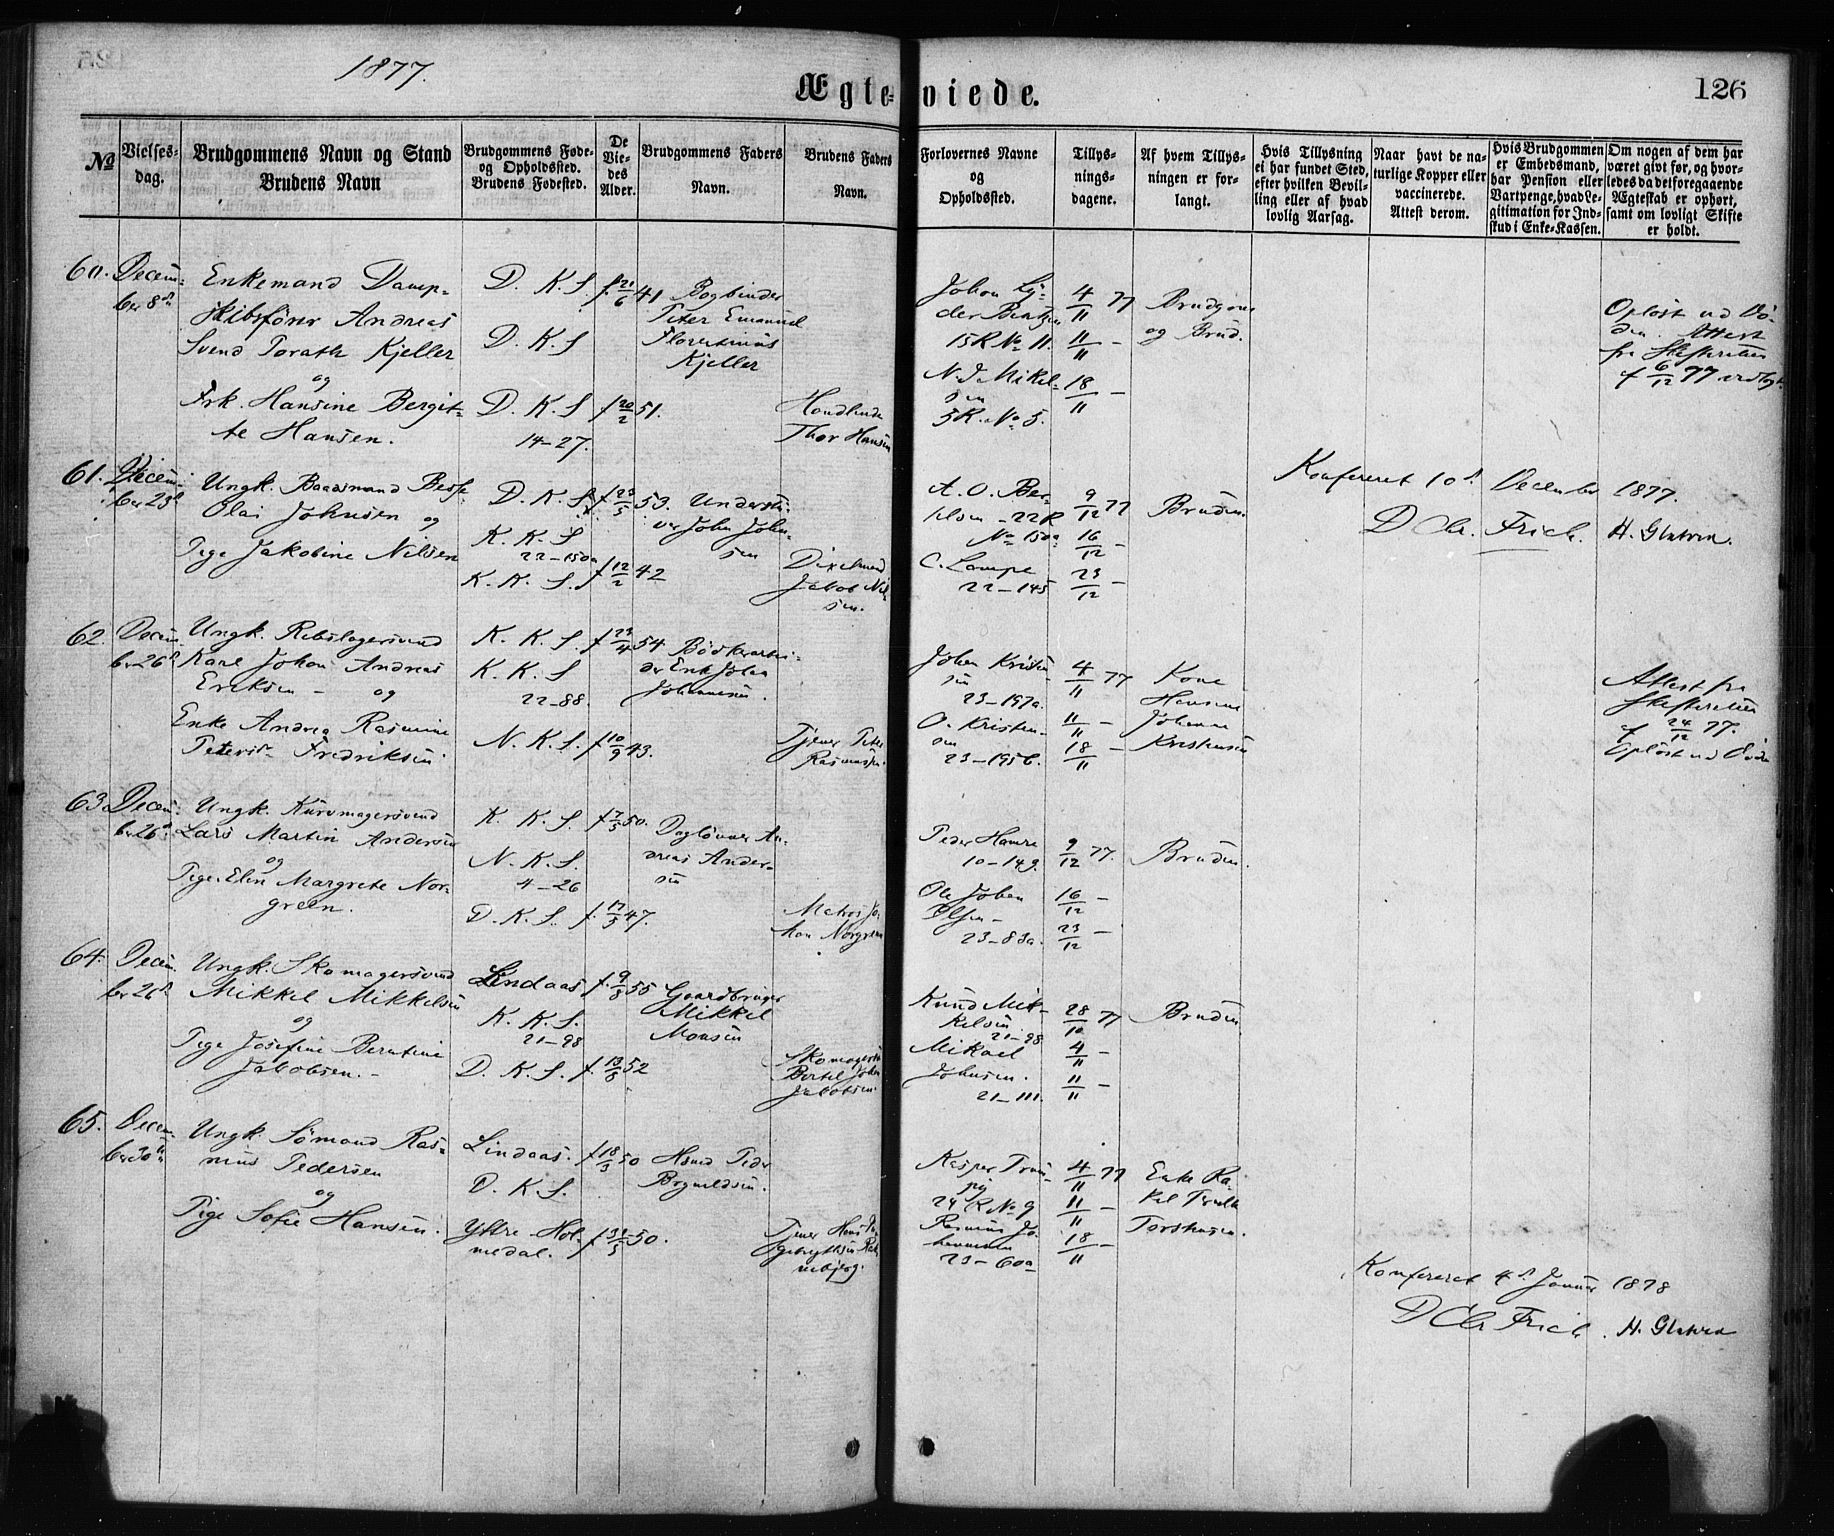 1877.
Ægte-viede.
126
№
Vielses-
dag.
Brudgommens Navn og Stand
Brudens Navn
Brudgommens Føde-
og Opholdssted.
Brudens Fødested.
De
Vie-
des
Alder.
Brudgommens Faders
Navn.
Brudens Faders
Navn.
Forlovernes Navne
og
Opholdssted.
Tillys-
nings-
dagene.
Af hvem Tillys-
ningen er for-
langt.
Hvis Tillysning
ei har fundet Sted,
efter hvilken Bevil-
ling eller af hvad
lovlig Aarsag.
Naar havt de na-
turlige Kopper eller
vaccinerede.
Attest derom.
Hvis Brudgommen
er Embedsmand,
har Pension eller
Vartpenge, hvad Le-
gitimation for Ind-
skud i Enke-Kassen.
Om nogen af dem har
været givt før, og hvor-
ledes da det foregaaende
Ægteskab er ophørt,
samt om lovligt Skifte
er holdt.
60. Decem-
ber 8de
Enkemand Damp-
skibsfører Andreas
Svend Torath Kjeller
og
Frk. Hansine Bergit-
te Hansen.
D. K. S.
D. K. S
D. K. S
14-27.
f. 21/6 41
f 20/2 51.
Bogbinder
Peter Emanuel
Florentinus
Kjeller
Thor Hansen
Johan
15 R No 11.
N. J. Mikel-
sen
5 R. No 5.
4/11 77
11/11 -
18/11 -
Brudgom
og Brud.
Opløst ved Dø-
den. Attest
fra Skifteretten
af 6/12 77
Konfereret 10d December 1877.
D Chr. Frich. H. Glatved.
61. Decem-
ber 23d
Ungk. Baadsmand
Olai Johnsen og
Pige Jakobine Nilsen
D. K. S.
K. K. S
22-150a
K. K. S.
f 23/5 53.
f 12/2 42
John John-
sen
Jakob Nil-
sen.
A. O. Ber-
22 R
No 150a
C. Lampe
22-145
9/12 77
16/12 -
23/12 -
Bruden.
62. Decem-
ber 26d
Ungk. Rebslagersvend
Karl Johan Andreas
Eriksen - og
Enke Andrea Rasmine
Petersdr Fredriksen
K. K. S.
K. K. S
22-88.
N. K. S.
f 29/4 54
f 10/9 43.
Bødkerarbei-
der Erik Johan
Johannesen.
Tjener Peter
Rasmussen.
Johan Kristen-
sen
23-197a.
O. Kristen-
sen
23-195b.
4/11 77
11/11 -
18/11 -
Kone
Johanna
Kristensen
Attest fra
Skifteretten
af 24/12 77.
Opløst ved Døden
63. Decem-
ber 26d
Ungk. Kurvmagersvend
Lars Martin Andersen
og
Pige Elen Margrete Nor-
green.
K. K. S.
N. K. S.
4-26
D. K. S.
f 7/5 50.
f. 17/5 47.
Daglønner An-
dreas Ander-
sen
Matros Jo-
han Norgreen
Peder Hamre
10-149.
Ole Johan
Olsen -
23-83a.
9/12 77.
16/12 -
23/12 -
Bruden.
64. Decem.
ber 26d
Ungk. Skomagersvend
Mikkel Mikkelsen
og
Pige Josefine Berntine
Jakobsen. -
Lindaas
K. K. S.
21-98
D. K. S.
f. 9/8 55
f. 13/8 52
Gaardbruger
Mikkel
Monsen
Bertel Johan
Jakobsen.
Knud Mik-
kelsen
21-98
Mikael
Johnsen.
21-111.
28/10 77
4/11 -
11/11 -
Bruden.
65. Decem.
ber 30te
Ungk. Sømand Ras-
mus Pedersen
og
Pige Sofie Hansen.
Lindaas.
D. K. S.
Yttre Hol-
medal.
f 18/3 50
f 31/5 50.
Husmd Peder
Brynildsen.
Tjener Hans
Kasper
24 R No 9
Rasmus Jo-
hannessen
23-60a
4/11 77
11/11 -
18/11 -
Enke Ra-
kel
Torstensen.
Konfereret 4d Januar 1878
D Chr Frich. H. Glatved